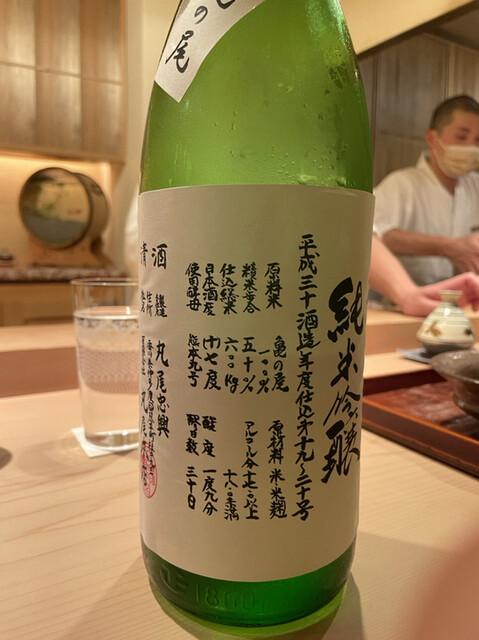 の尾
純米吟醸
平成三十酒造年度仕込才十九〜二十号
原料米 亀の尾 一〇〇% 原材料 米 米麹
精米歩合 五十% アルコール分 十七・〇以上
十八・〇未満
仕込総米 六〇〇kg
日本酒度 (+)七度 酸度 一度九分
使用酵母 熊本九号 醪日数 三十日
清酒
丸尾忠興